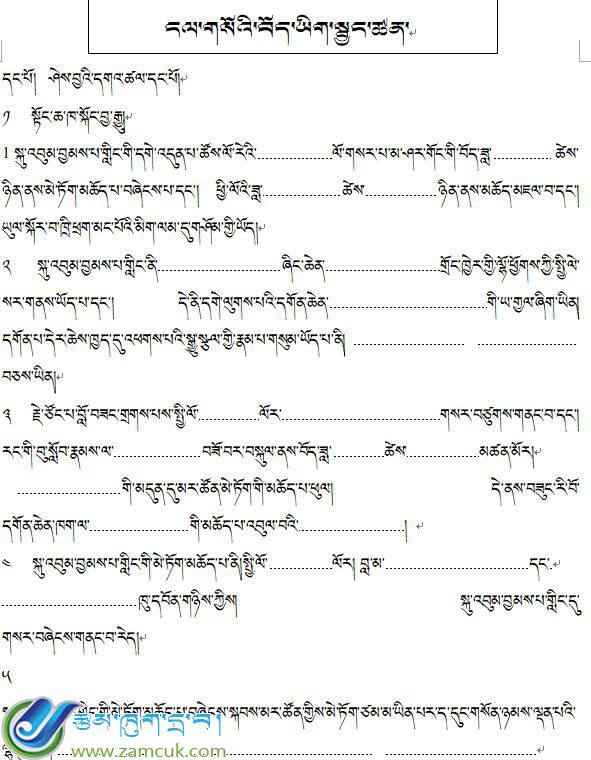 དལ་གསོའི་བོད་ཡིག་སྦྱང་ཚན་
དང་པོ། ཤེས་བྱའི་དགའ་ཚལ་དང་པོ།
༡ སྟོང་ཆ་ཁ་སྐོང་བྱ་རྒྱུ
1 སྐུ་འབུམ་བྱམས་པ་གླིང་གི་དགེ་འདུན་པ་ཚོས་ལོ་རེའི་...............ལོ་གསར་པ་མ་ཤར་གོང་གི་བོད་ཟླ་............ ཚེས་
ཉིན་ནས་མེ་ཏོག་མཆོད་པ་བཞེངས་པ་དང་། ཕྱི་ལོའི་ཟླ་...............ཚེས་...............ཉིན་ནས་མཆོད་མཇལ་བ་དང་།
ཡུལ་སྐོར་བ་ཁྲི་ཕྲག་མང་པོའི་མིག་ལམ་དུ་གཤོམ་གྱི་ཡོད།
༢ སྐུ་འབུམ་བྱམས་པ་གླིང་ནི་......................... ཞིང་ཆེན་.......................གྲོང་ཁྱེར་གྱི་ལྷོ་ཕྱོགས་ཀྱི་སྤྱི་ལེ་
སར་གནས་ཡོད་པ་དང་། དེ་ནི་དགེ་ལུགས་པའི་དགོན་ཆེན་................................གི་ཡ་གྱལ་ཞིག་ཡིན།
དགོན་པ་དེར་ཆེས་ཁྱད་དུ་འཕགས་པའི་སྒྱུ་རྩལ་གྱི་རྣམ་པ་གསུམ་ཡོད་པ་ནི། ...................... ....................
བཅས་ཡིན།
༣ རྗེ་ཙོང་པ་བློ་བཟང་གྲགས་པས་སྤྱི་ལོ་............ལོར་................................གསར་བཙུགས་གནང་བ་དང་།
རང་གི་བུ་སློབ་རྣམས་ལ་..................བཟོ་བར་བསྐུལ་ནས་བོད་ཟླ་..........ཚེས་.............མཚན་མོར།
.....................གི་མདུན་དུ་མར་ཚོན་མེ་ཏོག་གི་མཆོད་པ་ཕུལ། དེ་ནས་བཟུང་རི་བོ་
དགོན་ཆེན་ཁག་ལ་....................གི་མཆོད་པ་འབུལ་བའི་.....................།
༤ སྐུ་འབུམ་བྱམས་པ་གླིང་གི་མེ་ཏོག་མཆོད་པ་ནི།སྤྱི་ལོ་.............ལོར། བླ་མ་.............................དང་.
...........................ཁུ་དབོན་གཉིས་ཀྱིས། སྐུ་འབུམ་བྱམས་པ་གླིང་དུ་
གསར་བཞེངས་གནང་བ་རེད།
༥
གླིང་གི་མེ་ཏོག་མཆོད་པ་བཞེངས་སྐབས་མར་ཚོན་གྱིས་མེ་ཏོག་ཙམ་མ་ཡིན་པར་ད་དུང་གསོན་ཉམས་ལྡན་པའི་
ཛམ་ཁུག་དྲ་བ།
www.zamcuk.com